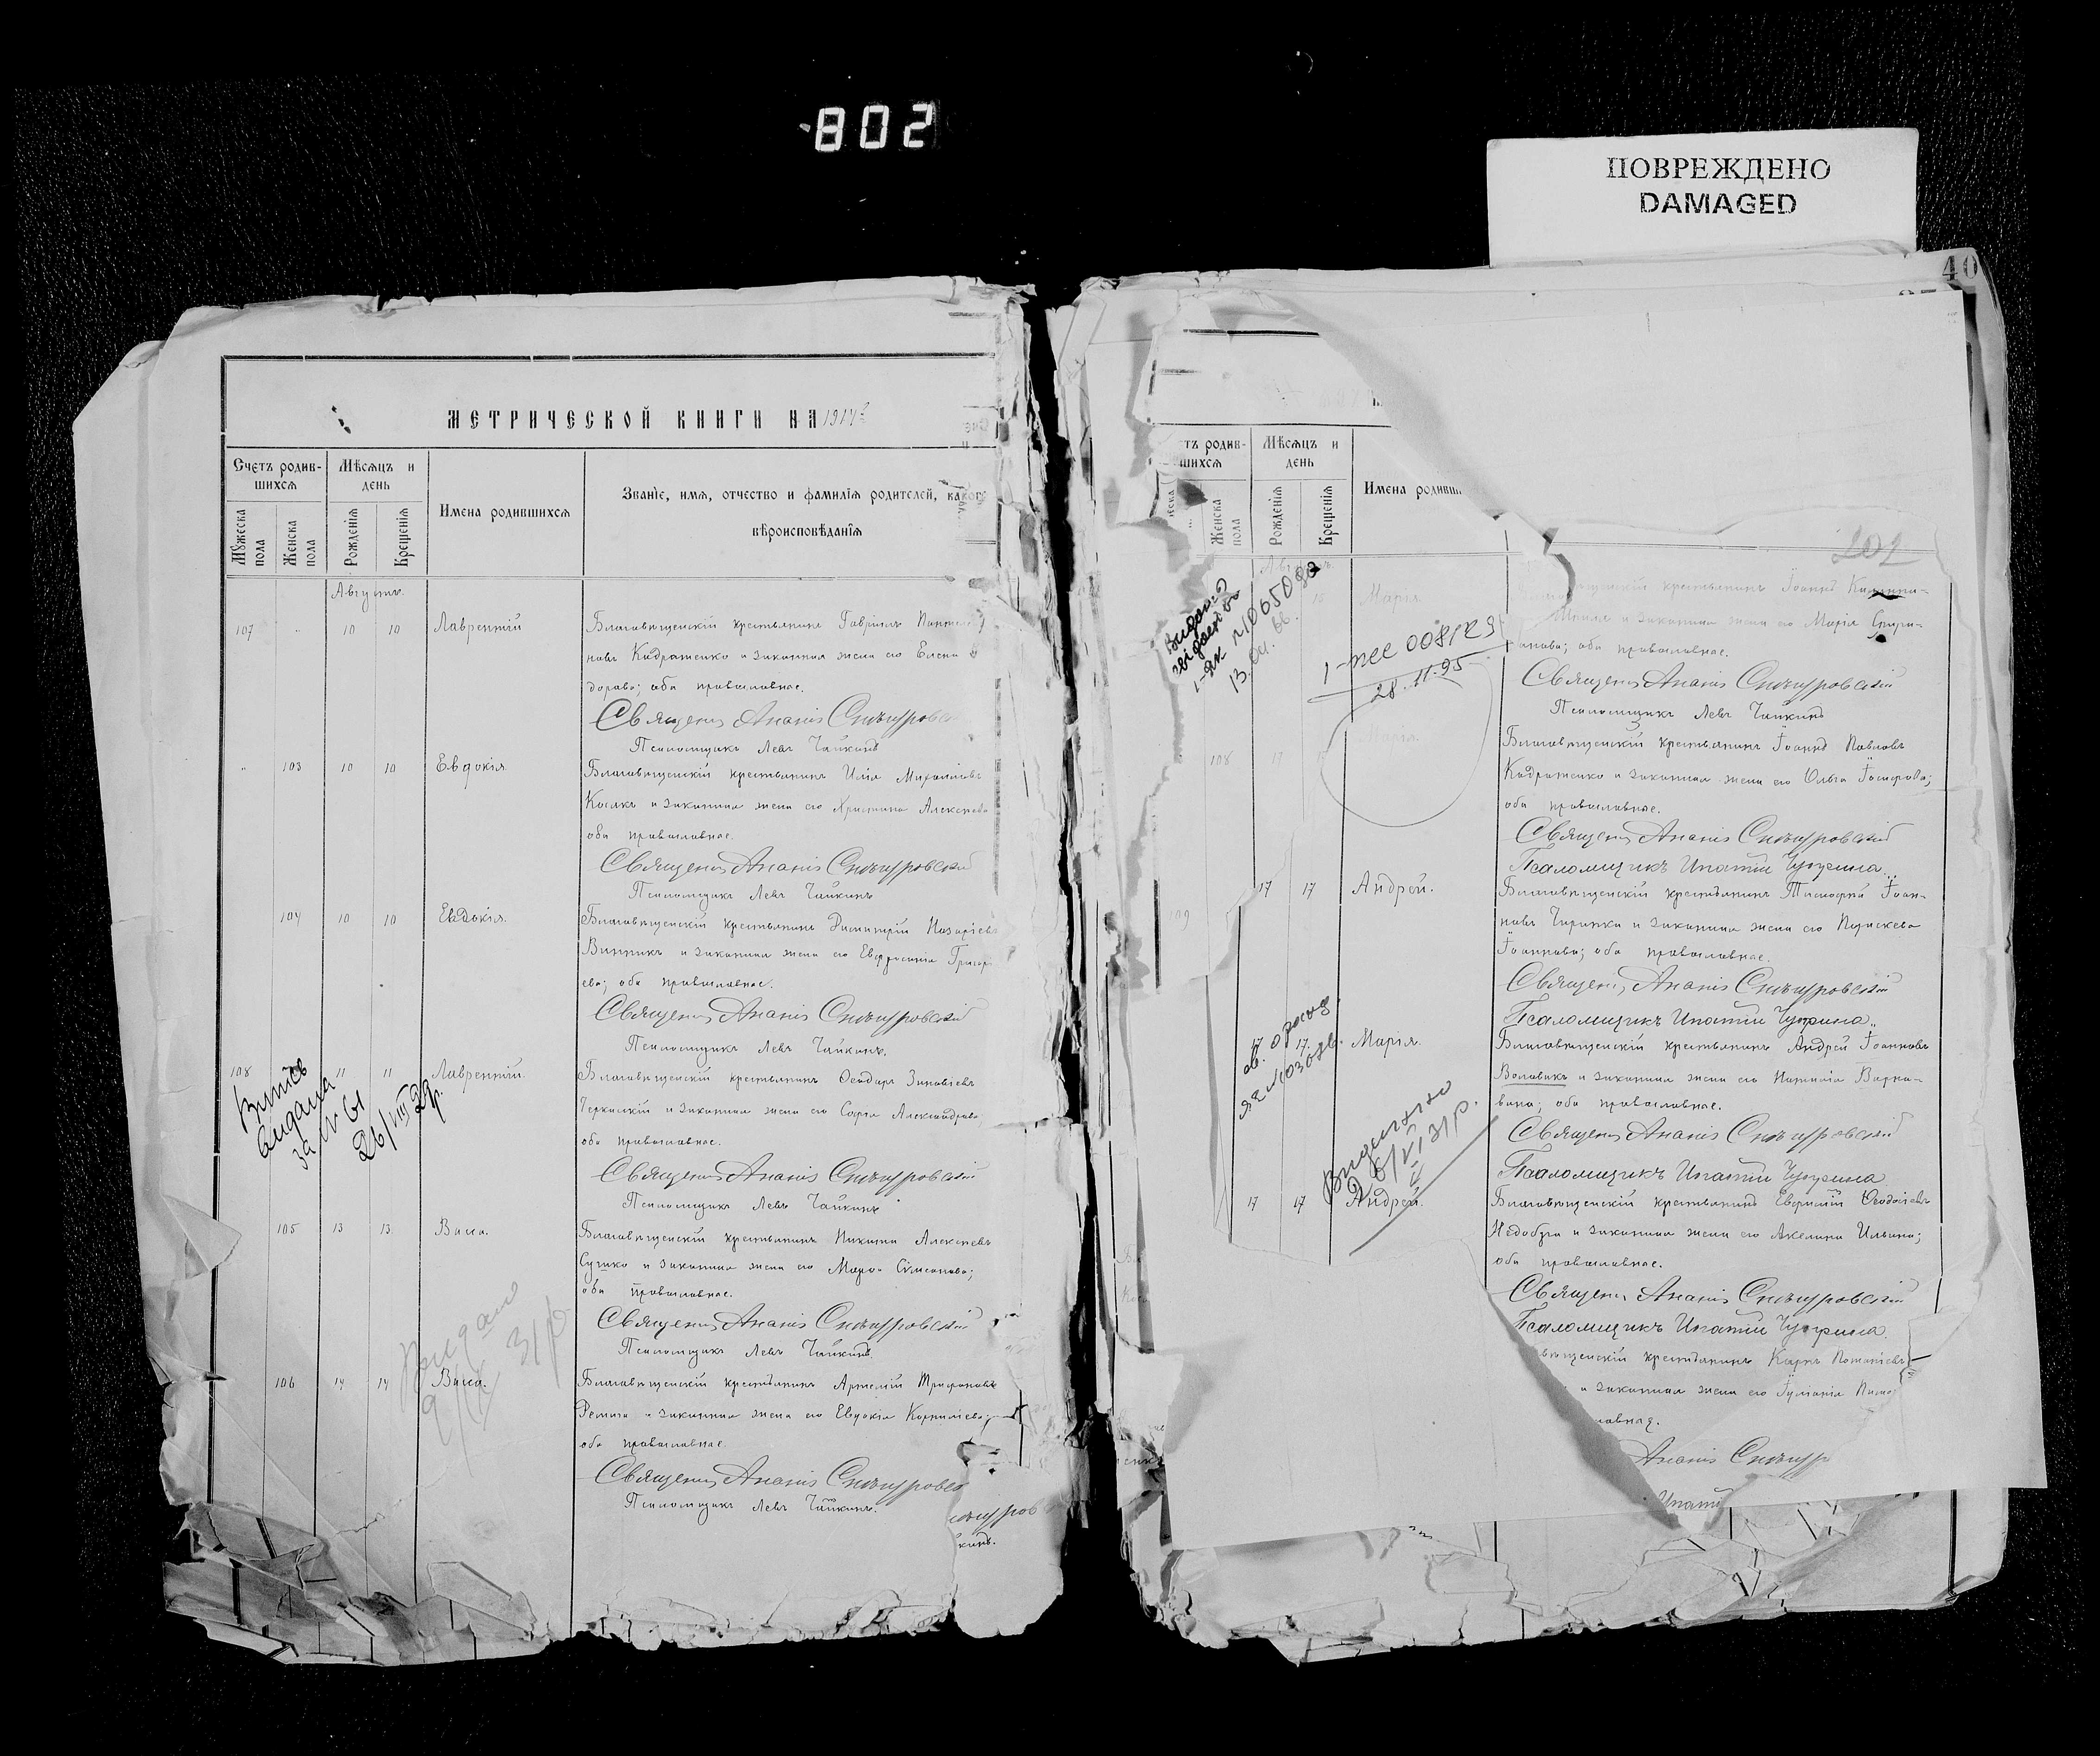 802
ПОВРЕЖДЕНО
DAMAGED
40
МЕТРИЧЕСКОЙ КНИГИ НА 1914
Счетъ родив-
шихся
Мѣсяцъ и
день
Имена родившихся
Званіе, имя, отчество и фамилія родителей, каког
вѣроисповѣданія
Мужеска
пола
Женска
пола
Рожденія
Крещенія
Августъ.
107 10 10 Лаврентій
Благовѣщенскій крестьянинъ Гавріилъ
новъ Кадраженко и законная жена его Елена
дорова; оба православные.
Священ Ананій Снѣгуровс
Псаломщикъ Левъ Чайкинъ
103 10 10 Евдокія
Благовѣщенскій крестьянинъ Илія Михайловъ
Косякъ и законная жена его Христина Алексѣева
оба православные.
Священ Ананій Снѣгуровскій
Псаломщикъ Левъ Чайкинъ
104 10 10 Евдокія.
Благовѣщенскій крестьянинъ Димитрій Назаріевъ
Винникъ и законная жена его Евфросинія Григор
ева; оба православные.
Священ Ананій Снѣгуровскій
Псаломщикъ Левъ Чайкинъ.
108 11 11 Лаврентій.
Витяг
видана
за № 61
26/VIII 29р.
Благовѣщенскій крестьянинъ Ѳеодоръ Зиновіевъ
Черкаскій и законная жена его Софія Александрова,
оба православные.
Священ Ананій Снѣгуровскій
Псаломщикъ Левъ Чайкинъ
105 13 13. Васса.
Благовѣщенскій крестьянинъ Никита Алексѣевъ
и законная жена его Марѳа Сѵмеонова;
оба православные.
Священ Ананій Снѣгуровскій
Псаломщикъ Левъ Чайкинъ.
Видано
31р
106 14 14 Васса.
Благовѣщенскій крестьянинъ Артемій Трифоновъ
и законная жена его Евдокія Корниліева;
оба православные.
Священ Ананій Снѣгуровс
Псаломщикъ Левъ Чайкинъ.
нѣгуров
кинъ.
тъ родив-
шихся
Мѣсяцъ и
день
Имена родивш
Женска
пола
Рожденія
Крещенія
202
Август
16 Марія
крестьянинъ Іоаннъ
и законная жена его Марія Григо-
оба православные.
Священ Ананій Снѣгуровскій
Псаломщикъ Левъ Чайкинъ
Видано
1-ЯК №
13.04.66.
1-пее 008123
28.11.95
108 17 Марія.
Благовѣщенскій крестьянинъ Іоаннъ Павловъ
Кадраженко и законная жена его Ольга Іосифова;
оба православные.
Священ Ананій Снѣгуровскій
Псаломщикъ Ипатій Чуприна.
17 17 Андрей.
Благовѣщенскій крестьянинъ Тимофей Іоан-
новъ и законная жена его Параскева
Іоаннова; оба православные.
Священ Ананій Снѣгуровскій
Псаломщикъ Ипатій Чуприна.
17 17. Марія.
Благовѣщенскій крестьянинъ Андрей Іоанновъ
Воловикъ и законная жена его Наталія Варла-
оба православные.
Священ Ананій Снѣгуровскій
Псаломщикъ Ипатій Чуприна
26/VI 31р.
17 17 Андрей.
Благовѣщенскій крестьянинъ Евфимій Ѳеодосіевъ
Недобуга и законная жена его Акелина Ильина;
оба православные.
Священ Ананій Снѣгуровскій
Псаломщикъ Ипатій Чуприна.
вѣщенскій крестьянинъ Карпъ Потапіевъ
и законная жена его Іуліанія
лавная.
Ананій Снѣгур
Ипатій